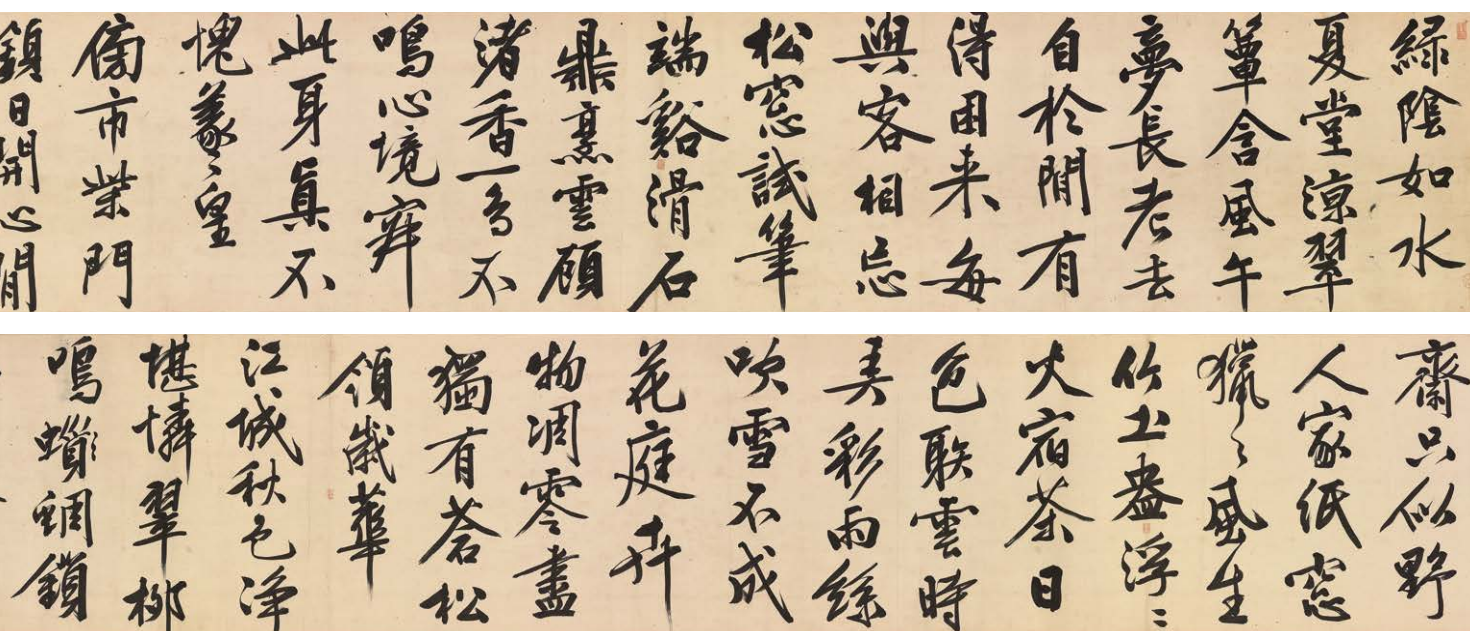 綠陰如水
夏堂涼翠
簟含風午
夢長老去
自於閒有
得困来每
與客相忘
松窓試筆
端谿滑石
鼎烹雲顧
渚香一鳥不
鳴心境寂
此身真不
愧羲〻皇
傍市柴門
鎖日開心閒
齋只似野
人家紙窓
獵〻風生
竹土盎浮〻
火宿茶日
色映雲時
弄彩雨絲
吹雪不成
花庭卉
物凋零盡
獨有蒼松
領歲華
江城秋色净
堪憐翠柳
鳴蜩鎖